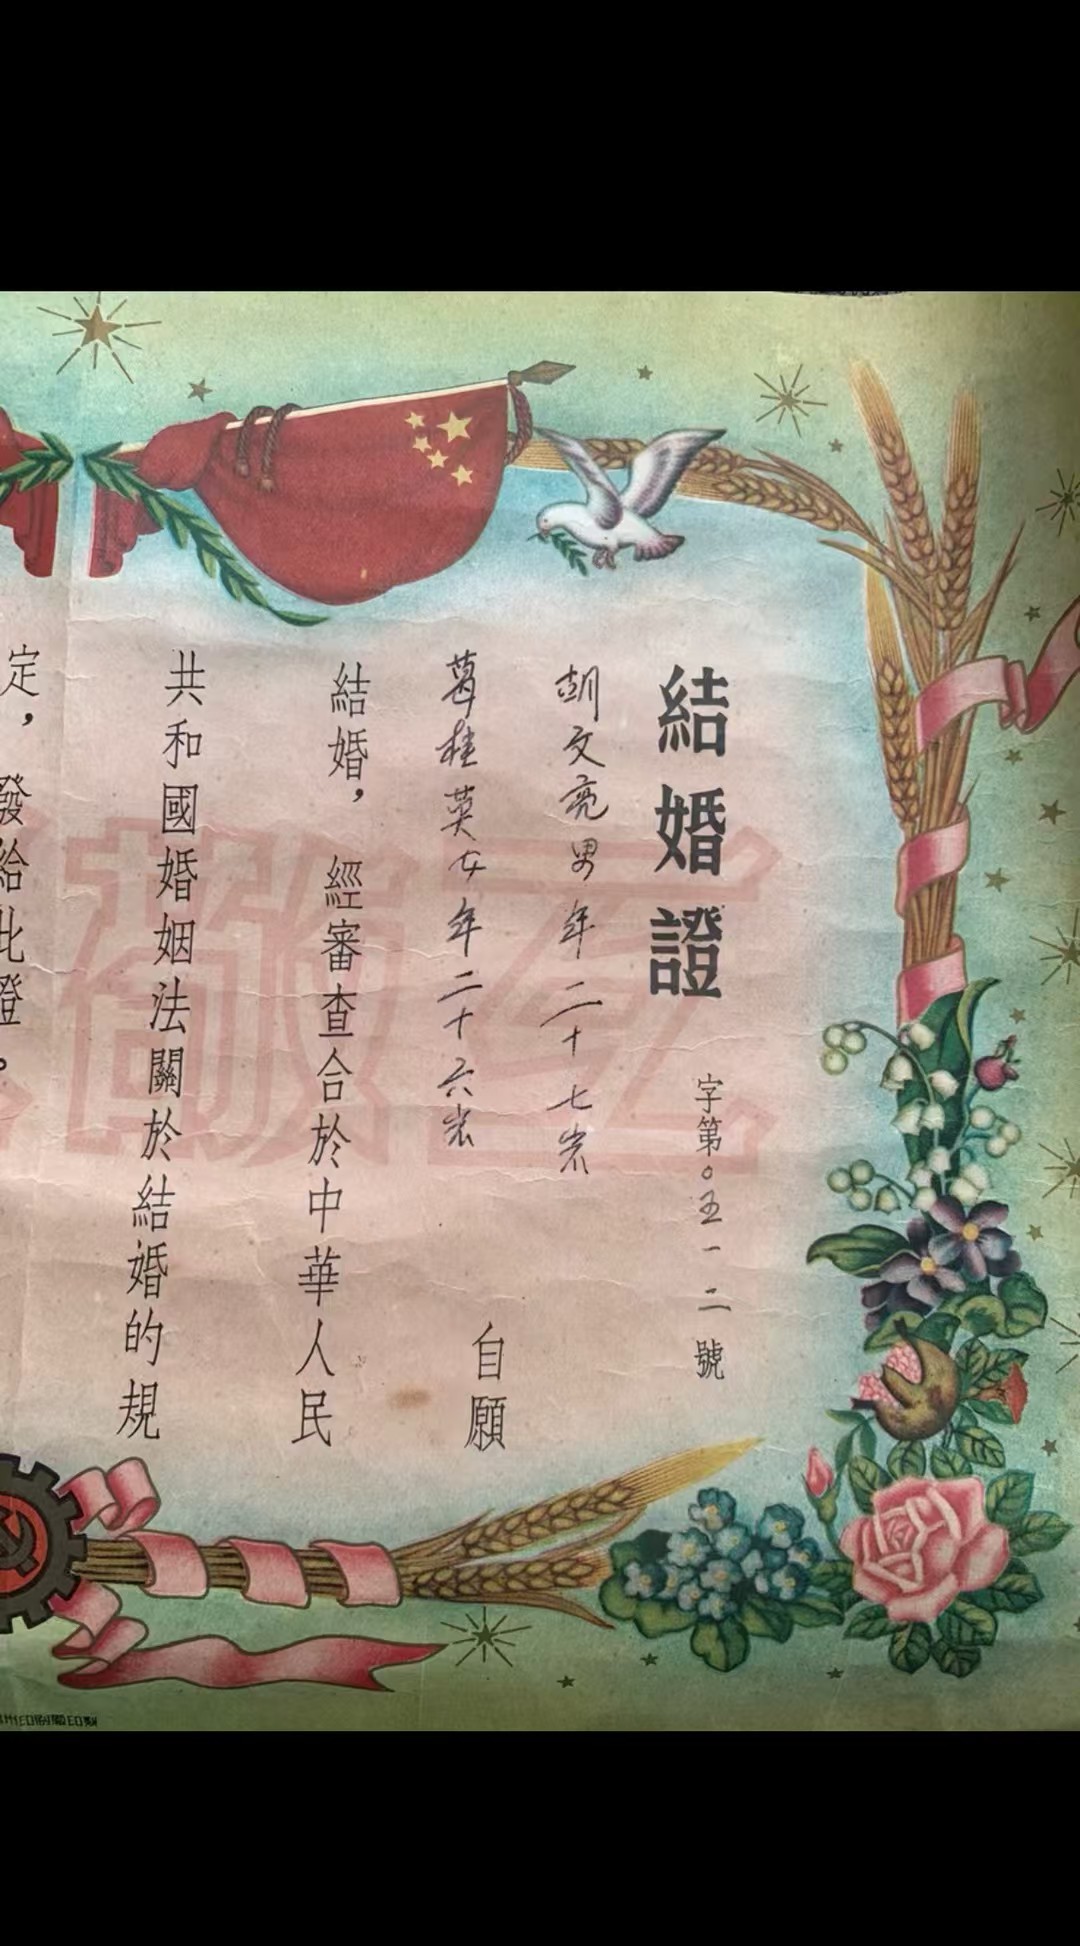 結婚證
字第〇五一二號
胡文亮男年二十七岁
葛桂英女年二十六岁
自願
結婚，經審查合於中華人民
共和國婚姻法關於結婚的規
定，發給此證。